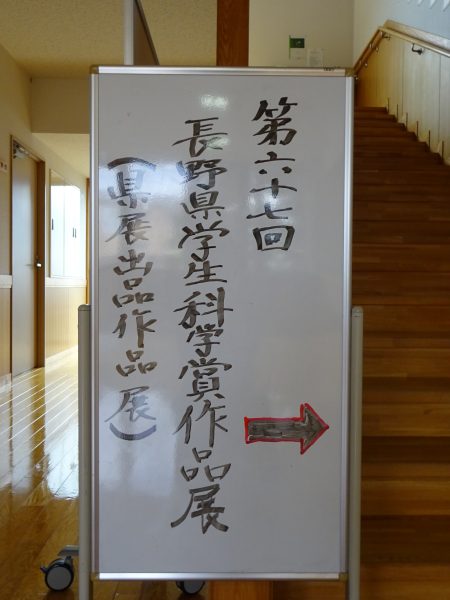 第六十七回
長野県学生科学賞作品展
(県展出品作品展)